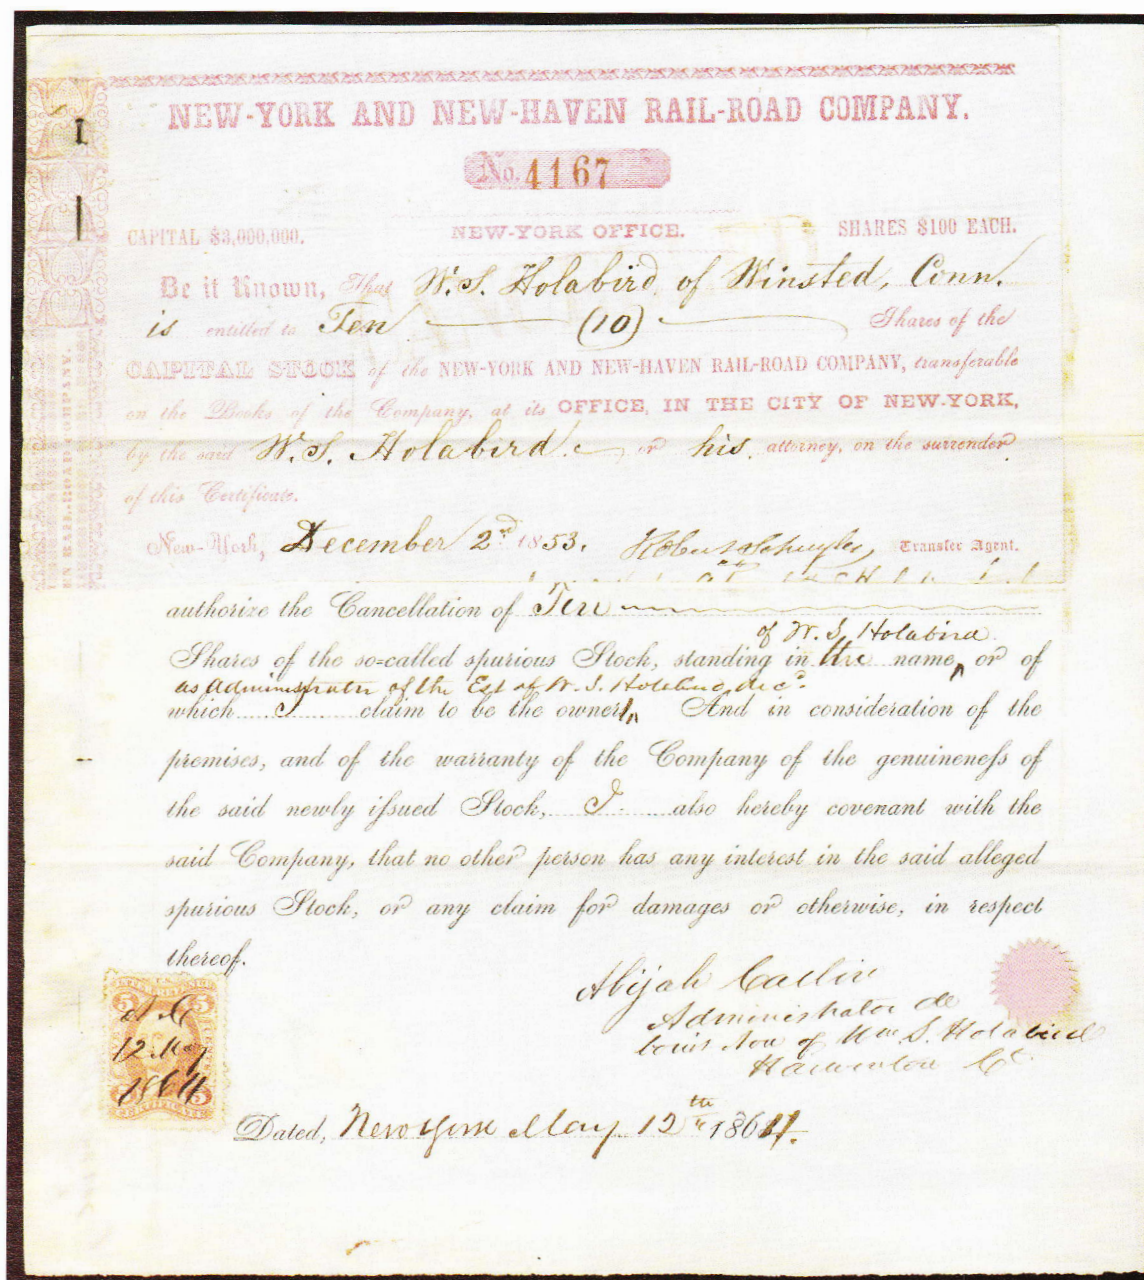 NEW-YORK AND NEW-HAVEN RAIL-ROAD COMPANY.
No. 4167
CAPITAL $3,000,000. NEW-YORK OFFICE. SHARES $100 EACH.
Be it Known, That W. S. Holabird, of Winsted, Conn.
is entitled to Ten (10) Shares of the
CAPITAL STOCK of the NEW-YORK AND NEW-HAVEN RAIL-ROAD COMPANY, transferable
on the Books of the Company, at its OFFICE, IN THE CITY OF NEW-YORK,
by the said W. S. Holabird. or his attorney, on the surrender
of this Certificate.
New-York, December 2nd 1853. Robert Schuyler, Transfer Agent.
authorize the Cancellation of Ten
of W. S. Holabird
Shares of the so-called spurious Stock, standing in the name, or of
as Administrator of the Est of W. S. Holabird, decd.
which I claim to be the owner, And in consideration of the
premises, and of the warranty of the Company of the genuineness of
the said newly issued Stock, I also hereby covenant with the
said Company, that no other person has any interest in the said alleged
spurious Stock, or any claim for damages or otherwise, in respect
thereof.
Abijah Catlin
Administrator de
bonis non of Wm S. Holabird
Harwinton Ct.
5 5
A C
12 May
1864
CERTIFICATE
Dated, New York May 12th 1864.
EN RAIL-ROAD COMPANY.